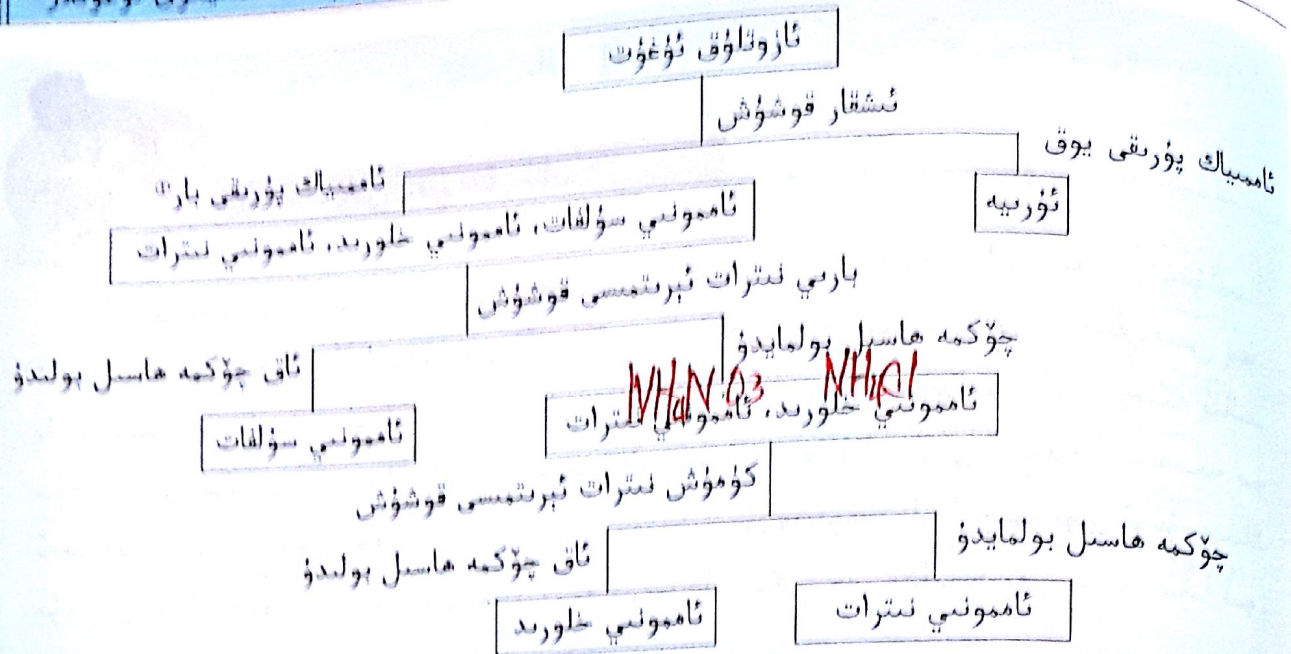 ئازوتلۇق ئوغۇت
ئىشقار قوشۇش
ئاممىياك پۇرىقى يوق
ئاممىياك پۇرىقى بار①
ئۇرىيە
ئاممونىي سۇلفات، ئاممونىي خلورىد، ئاممونىي نىترات
بارىي نىترات ئېرىتمىسى قوشۇش
چۆكمە ھاسىل بولمايدۇ
ئاق چۆكمە ھاسىل بولىدۇ
NH4NO3 NH4Cl
ئاممونىي خلورىد، ئاممونىي نىترات
ئاممونىي سۇلفات
كۈمۈش نىترات ئېرىتمىسى قوشۇش
چۆكمە ھاسىل بولمايدۇ
ئاق چۆكمە ھاسىل بولىدۇ
ئاممونىي نىترات
ئاممونىي خلورىد